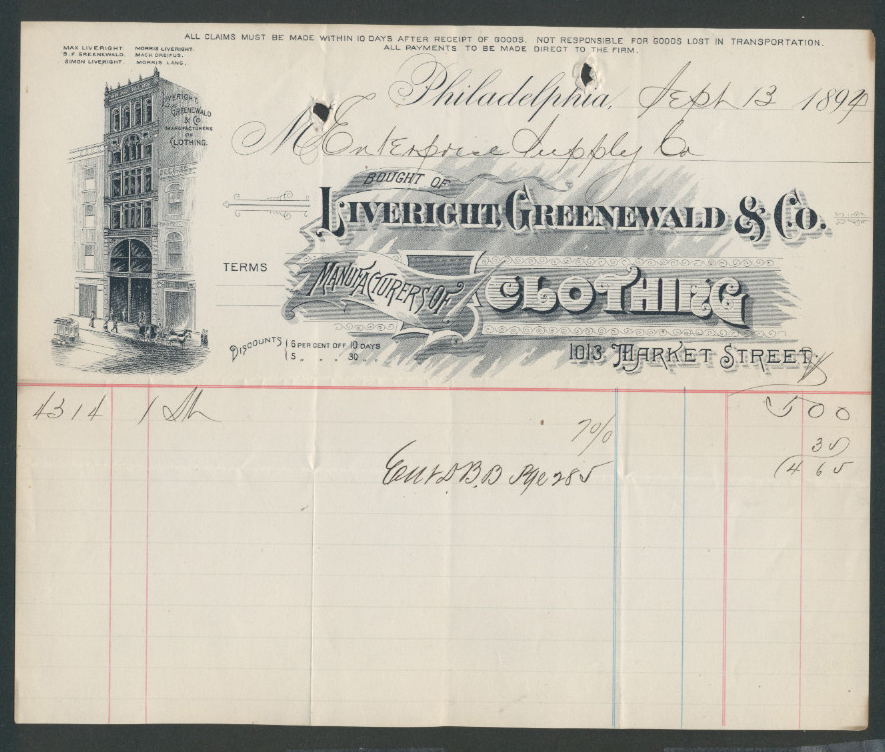 ALL CLAIMS MUST BE MADE WITHIN 10 DAYS AFTER RECEIPT OF GOODS. NOT RESPONSIBLE FOR GOODS LOST IN TRANSPORTATION.
ALL PAYMENTS TO BE MADE DIRECT TO THE FIRM.
MAX LIVERIGHT. MORRIS LIVERIGHT.
B. F. GREENEWALD. MACK DREIFUS.
SIMON LIVERIGHT. MORRIS LANG.
LIVERIGHT,
GREENEWALD
& CO
MANUFACTURERS
OF
CLOTHING.
Philadelphia, Sept 13 1894
M Enterprise Supply Co
BOUGHT OF
LIVERIGHT, GREENEWALD & CO.
TERMS
MANUFACTURERS OF CLOTHING
DISCOUNTS 6 PER CENT OFF 10 DAYS
5 . . . . 30 . .
1013 MARKET STREET.
4314 1 St 500
7% 35
465
Ent D.B.B Pge 285